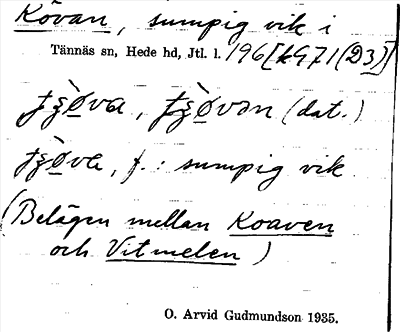 Kövan, sumpig vik i
Tännäs sn, Hede hd, Jtl. l. 196 [kG71(D3)]
(dat.)
f. : sumpig vik
(Belägen mellan Koaven
och Vitmelen)
O. Arvid Gudmundson 1935.